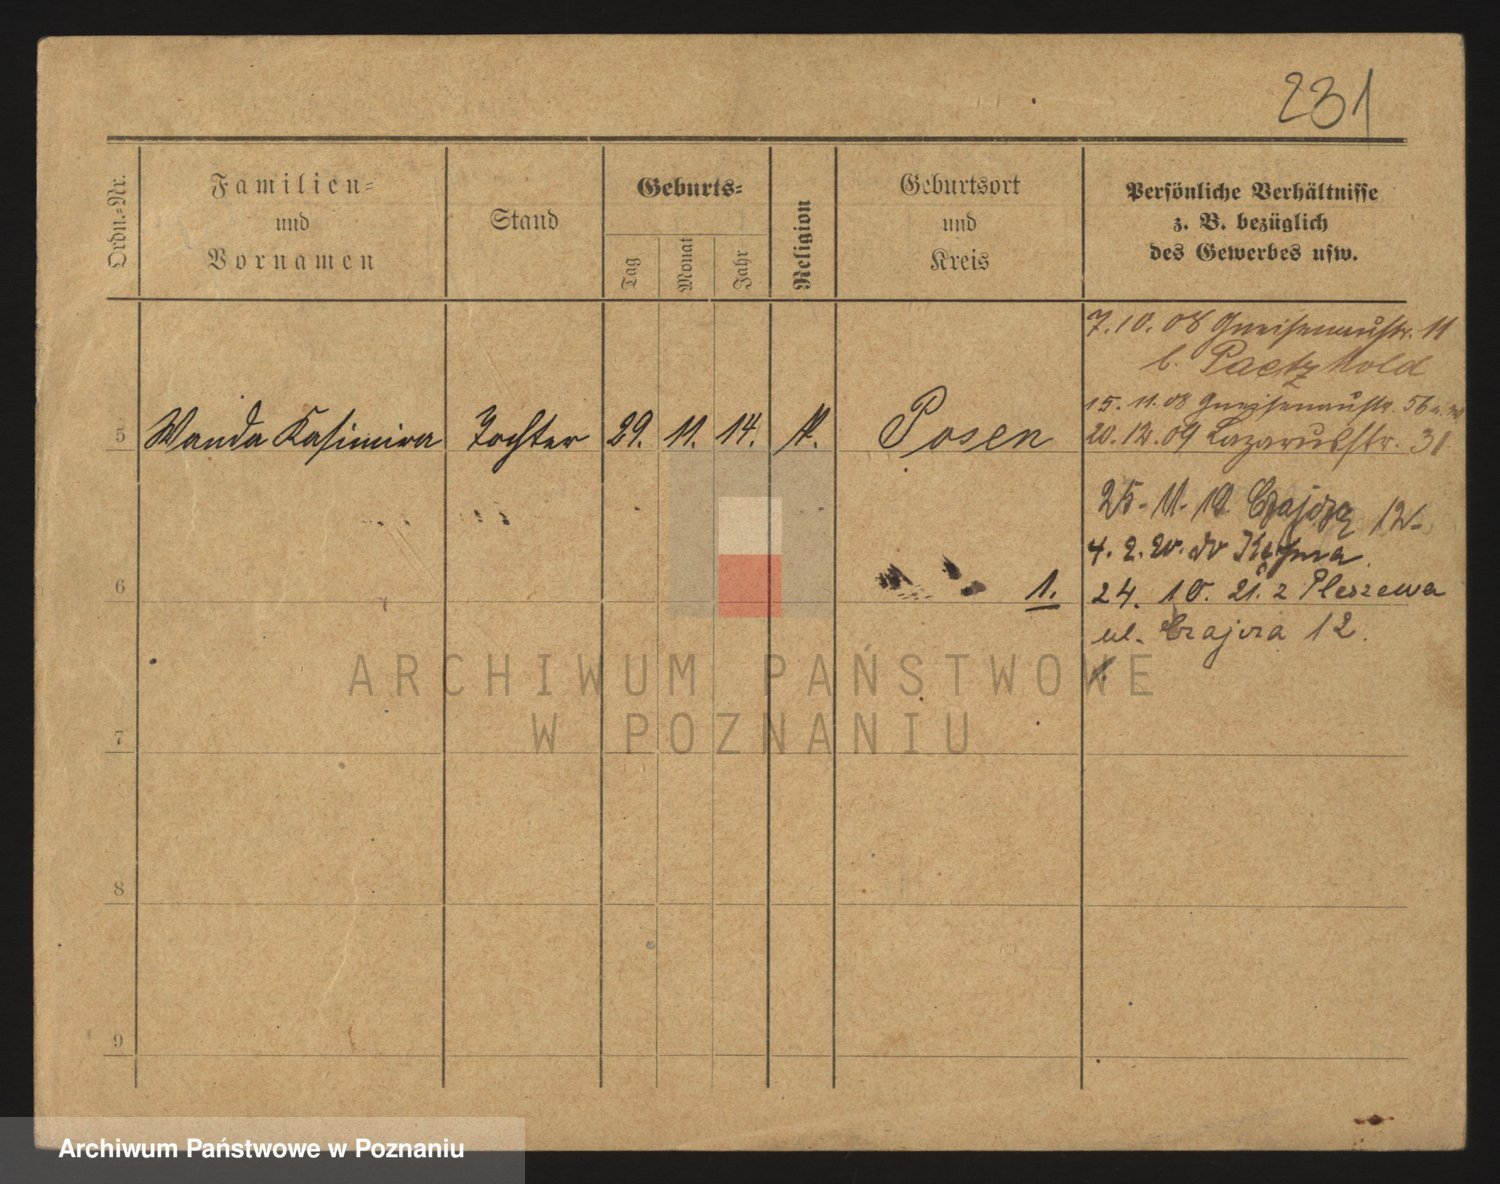 231
Ordn.-Nr.
Familien-
und
Vornamen
Stand
Geburts-
Tag
Monat
Jahr
Religion
Geburtsort
und
Kreis
Persönliche Verhältnisse
z. B. bezüglich
des Gewerbes usw.
7. 10. 08 Gneisenaustr. 11
b. Paetzhold
15. 11. 08 Gneisenaustr. 56
5 Wanda Kasimira Tochter 29. 11. 14. Posen
20. 12. 09 Lazarusstr. 31
25. 11. 19 Czajcza 12.
4. 2. 20. do
6
1.
24. 10. 21. z Pleszewa
ul. Czajcza 12.
ARCHIWUM PAŃSTWOWE
W POZNANIU
7
8
9
Archiwum Państwowe w Poznaniu